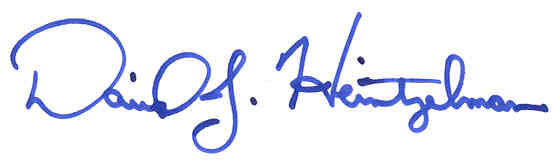 David J. Heintzelman